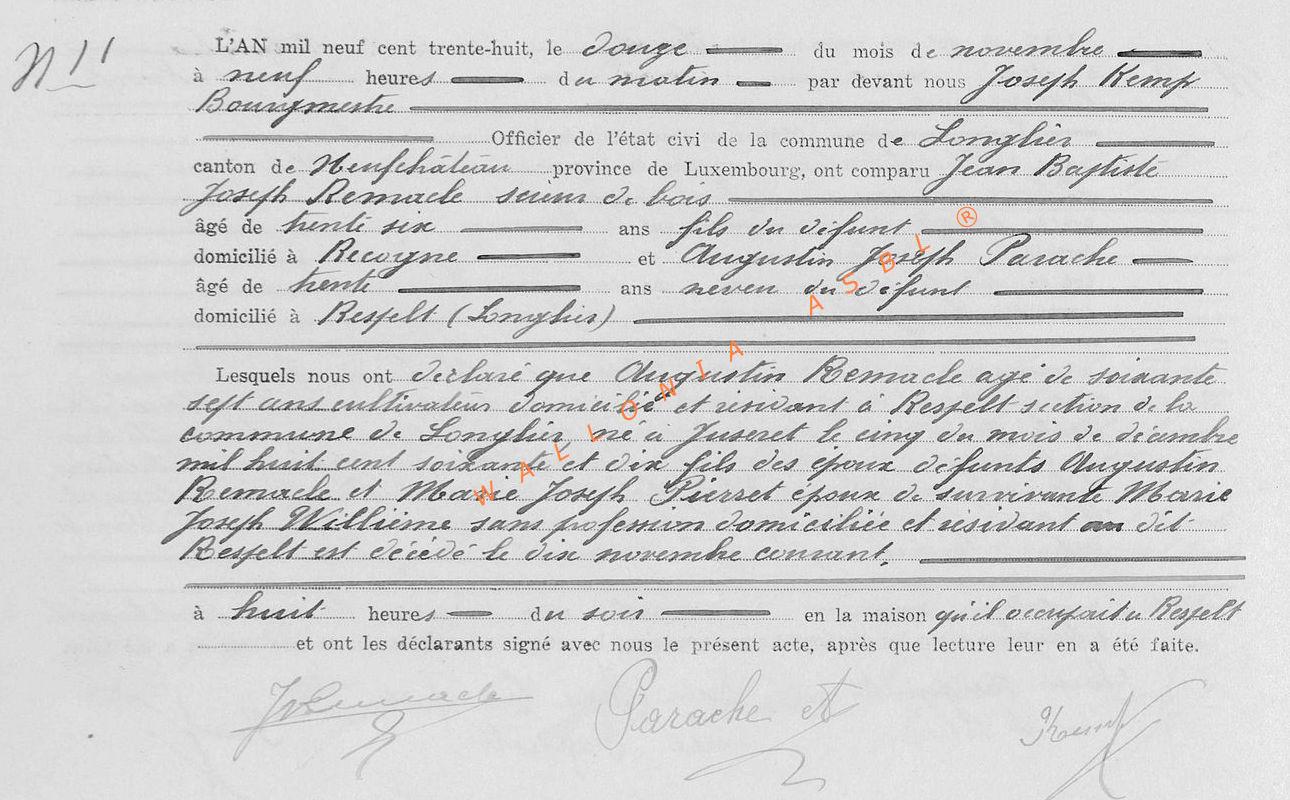 N 11
L'AN mil neuf cent trente-huit, le douze du mois de novembre
à neuf heures du matin par devant nous Joseph Kemp
Bourgmestre
Officier de l'état civi de la commune de Longlier
canton de Neufchâteau province de Luxembourg, ont comparu Jean Baptiste
Joseph Remacle scieur de bois
âgé de trente six ans fils du défunt
domicilié à Recogne et Augustin Joseph Parache
âgé de trente ans neveu du défunt
domicilié à Respelt (Longlier)
Lesquels nous ont declaré que Augustin Remacle agé de soixante
sept ans cultivateur domicilié et résidant à Respelt section de la
commune de Longlier, né à Juseret le cinq du mois de décembre
mil huit cent soixante et dix fils des époux défunts Augustin
Remacle et Marie Joseph Pierret époux de survivante Marie
Joseph Willième sans profession domiciliée et résidant dit
Respelt est décédé le dix novembre courant.
à huit heures du soir en la maison qu'il occupait a Respelt
et ont les déclarants signé avec nous le présent acte, après que lecture leur en a été faite.
JRemacle Parache A Kemp
WALLONIA ASBL ®